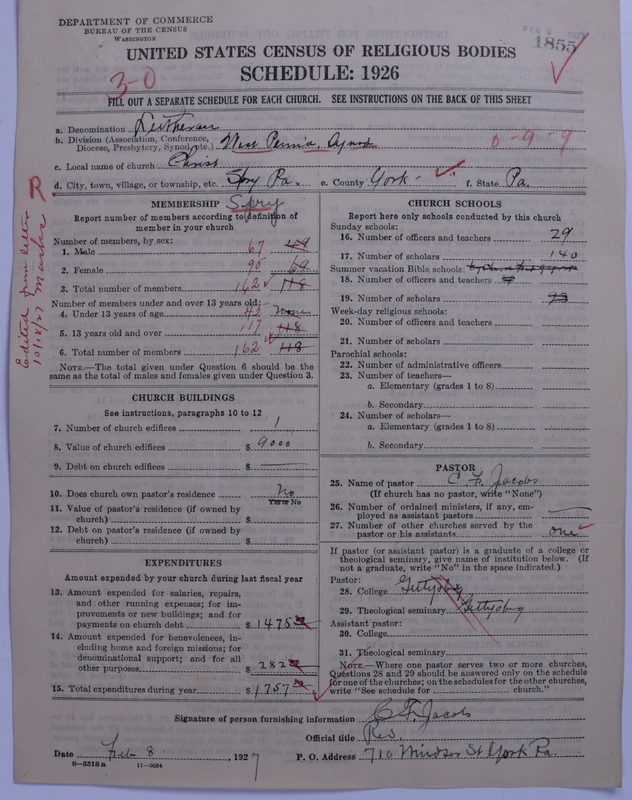 DEPARTMENT OF COMMERCE
BUREAU OF THE CENSUS
WASHINGTON
FEB 9 1927
1855
UNITED STATES CENSUS OF RELIGIOUS BODIES
SCHEDULE: 1926
3-0
FILL OUT A SEPARATE SCHEDULE FOR EACH CHURCH. SEE INSTRUCTIONS ON THE BACK OF THIS SHEET
a. Denomination Lutheran
b. Division (Association, Conference, Diocese, Presbytery, Synod, etc.) West Penn'a, Synod 0-9-9
c. Local name of church Christ
d. City, town, village, or township, etc. Spry Pa. e. County York - f. State Pa.
Edited from letter
10/18/27 Marks
R
MEMBERSHIP Spry
Report number of members according to definition of member in your church
Number of members, by sex:
1. Male 67
2. Female 95
3. Total number of members 162 118
Number of members under and over 13 years old:
4. Under 13 years of age 45 None
5. 13 years old and over 117 118
6. Total number of members 162 118
NOTE.—The total given under Question 6 should be the same as the total of males and females given under Question 3.
CHURCH BUILDINGS
See instructions, paragraphs 10 to 12
7. Number of church edifices 1
8. Value of church edifices $ 9000
9. Debt on church edifices $
10. Does church own pastor's residence No
Yes or No
11. Value of pastor's residence (if owned by church) $
12. Debt on pastor's residence (if owned by church) $
EXPENDITURES
Amount expended by your church during last fiscal year
13. Amount expended for salaries, repairs, and other running expenses; for improvements or new buildings; and for payments on church debt $ 1475
14. Amount expended for benevolences, including home and foreign missions; for denominational support; and for all other purposes $ 282
15. Total expenditures during year $ 1757
CHURCH SCHOOLS
Report here only schools conducted by this church
Sunday schools:
16. Number of officers and teachers 29
17. Number of scholars 140
Summer vacation Bible schools:
18. Number of officers and teachers
19. Number of scholars 93
Week-day religious schools:
20. Number of officers and teachers
21. Number of scholars
Parochial schools:
22. Number of administrative officers
23. Number of teachers—
a. Elementary (grades 1 to 8)
b. Secondary
24. Number of scholars—
a. Elementary (grades 1 to 8)
b. Secondary
PASTOR
25. Name of pastor C. F. Jacobs
(If church has no pastor, write "None")
26. Number of ordained ministers, if any, employed as assistant pastors
27. Number of other churches served by the pastor or his assistants one
If pastor (or assistant pastor) is a graduate of a college or theological seminary, give name of institution below. (If not a graduate, write "No" in the space indicated.)
Pastor:
28. College Gettysburg
29. Theological seminary Gettysburg
Assistant pastor:
30. College
31. Theological seminary
NOTE.—Where one pastor serves two or more churches, Questions 28 and 29 should be answered only on the schedule for one of the churches; on the schedules for the other churches, write "See schedule for church."
Signature of person furnishing information C. F. Jacobs
Official title Rev.
Date Feb 8, 1927 P. O. Address 710 Windsor St York Pa.
8-5518a 11-9054